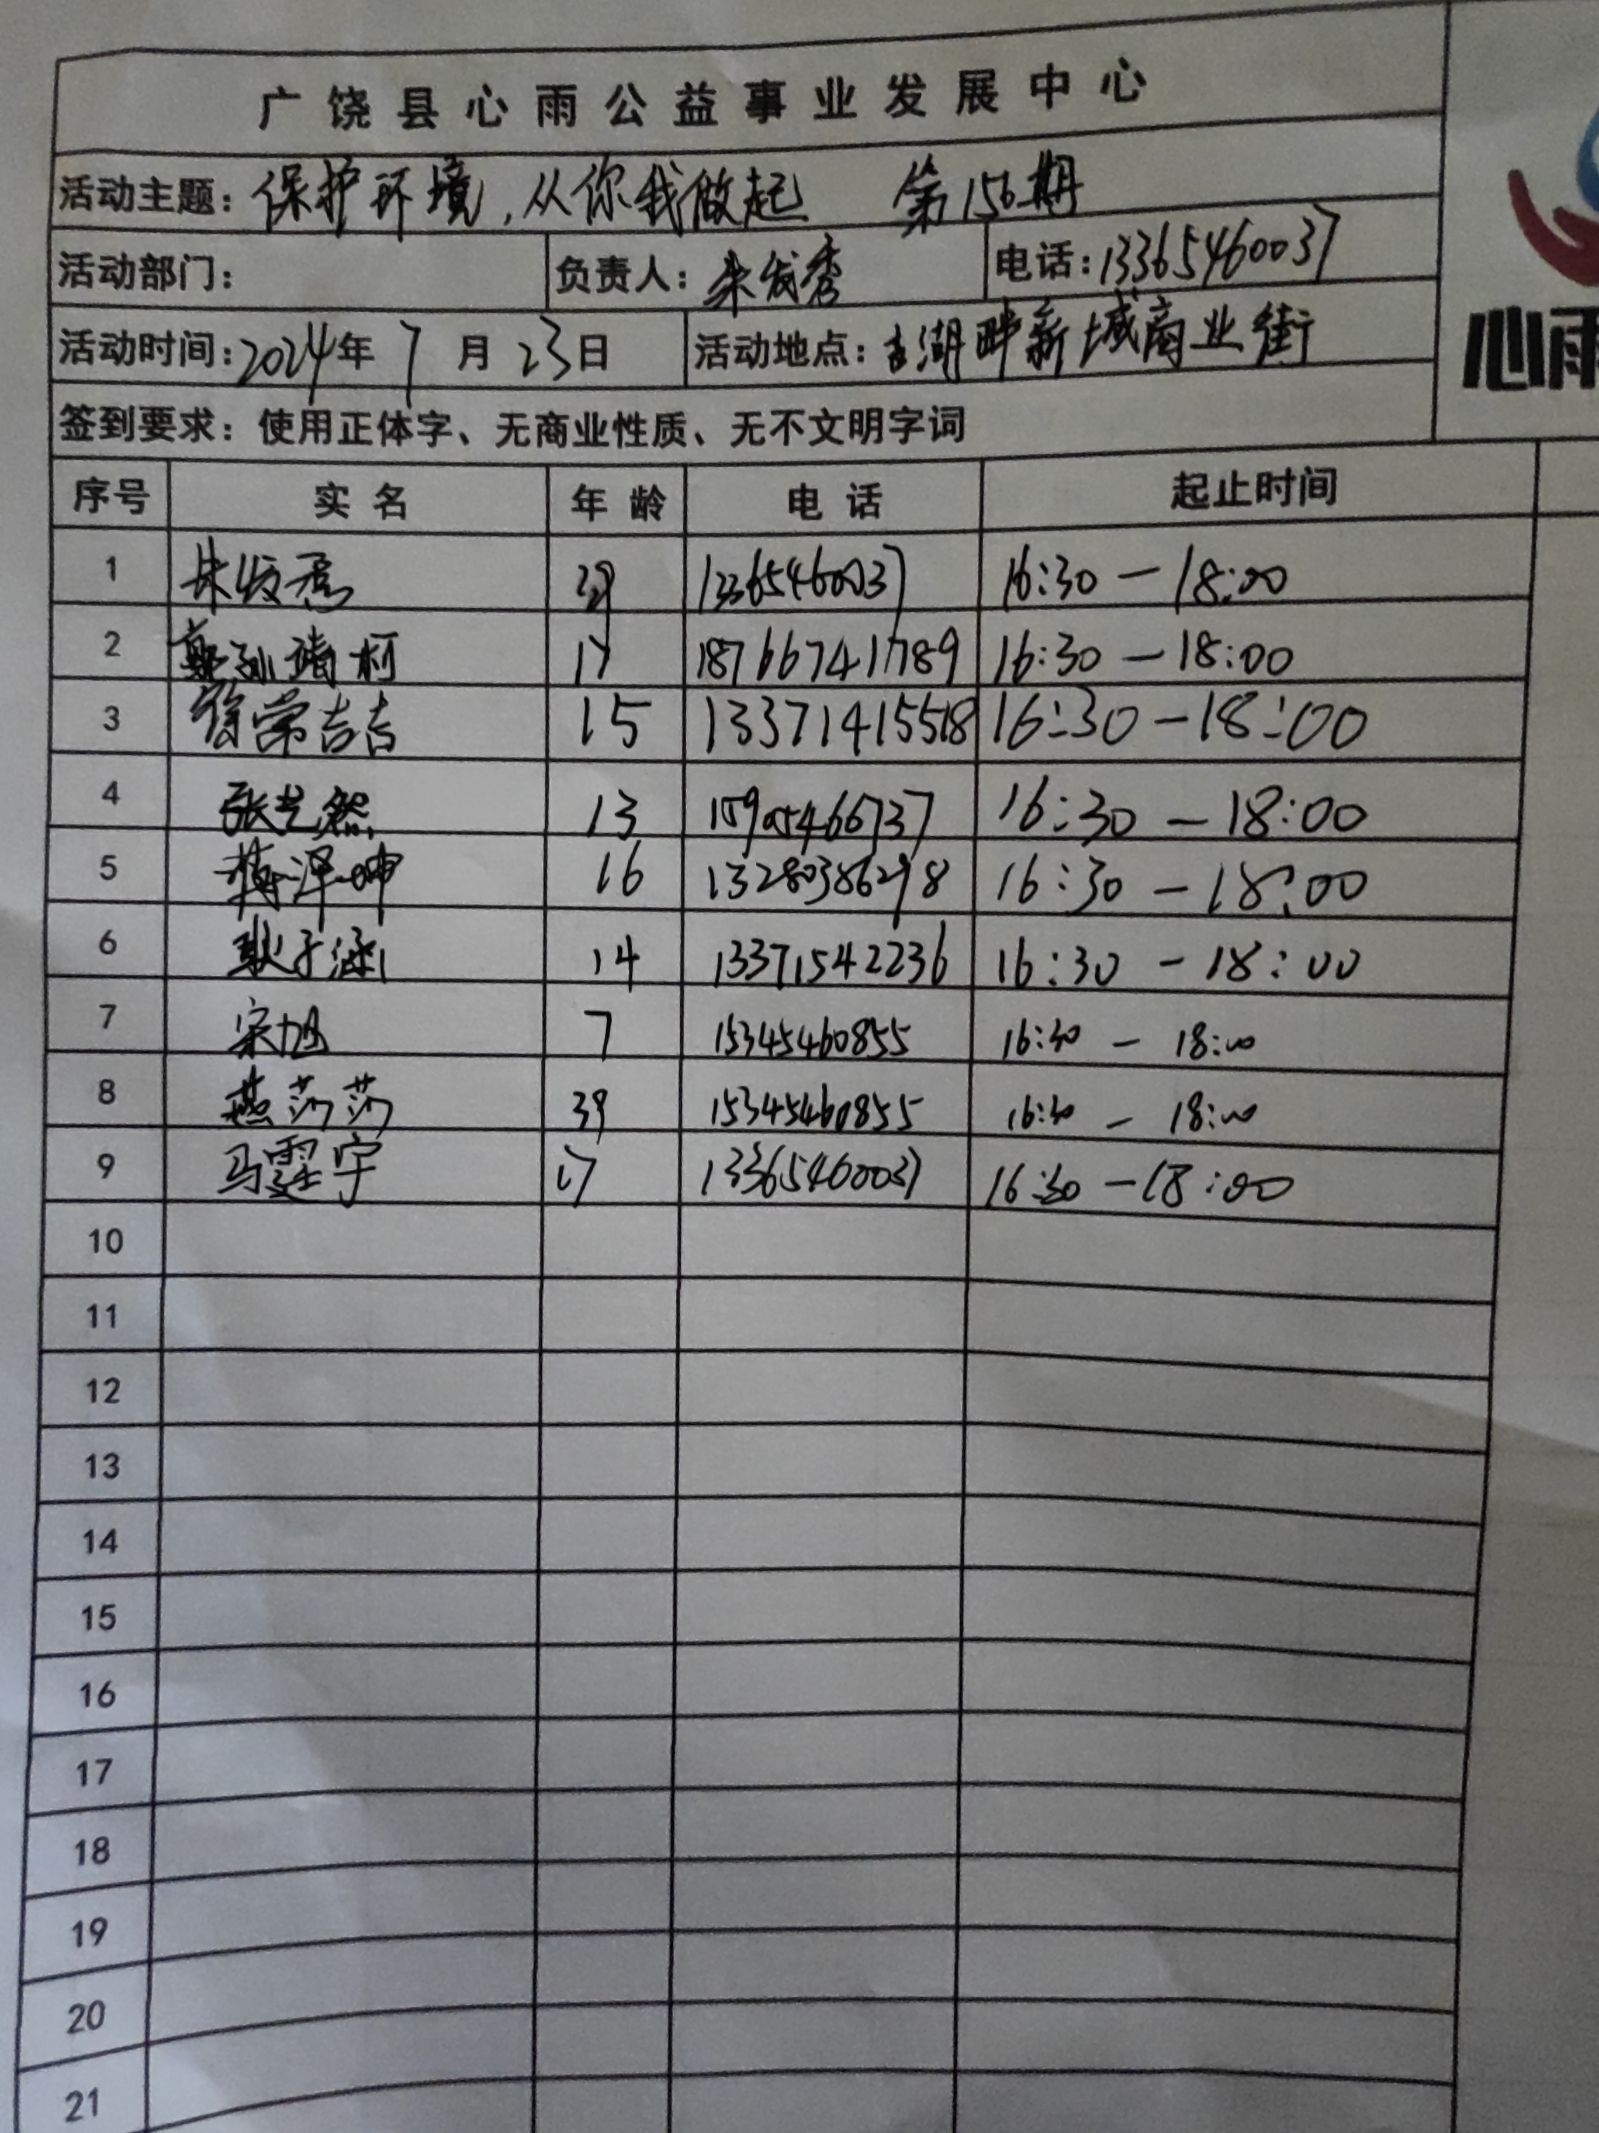 广饶县心雨公益事业发展中心
活动主题：保护环境，从你我做起 第156期
活动部门： 负责人：朱发秀 电话：13365460037
活动时间：2024年7月23日 活动地点：古湖畔新城商业街
心雨
签到要求：使用正体字、无商业性质、无不文明字词
序号 实名 年龄 电话 起止时间
1 朱发秀 39 13365460037 16:30—18:00
2 靖柯 17 18766741789 16:30—18:00
3 徐常吉吉 15 13371415518 16:30—18:00
4 张艺然 13 15905466737 16:30—18:00
5 梅泽呻 16 13280386298 16:30—18:00
6 耿子涵 14 13371542236 16:30—18:00
7 宋旭 7 15345460855 16:30—18:00
8 燕莎莎 39 15345460855 16:30—18:00
9 马霆宇 17 13365460037 16:30—18:00
10
11
12
13
14
15
16
17
18
19
20
21